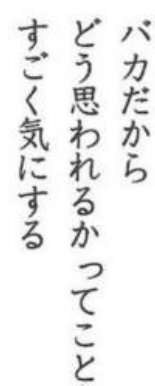 バカだから
どう思われるかってこと
すごく気にする